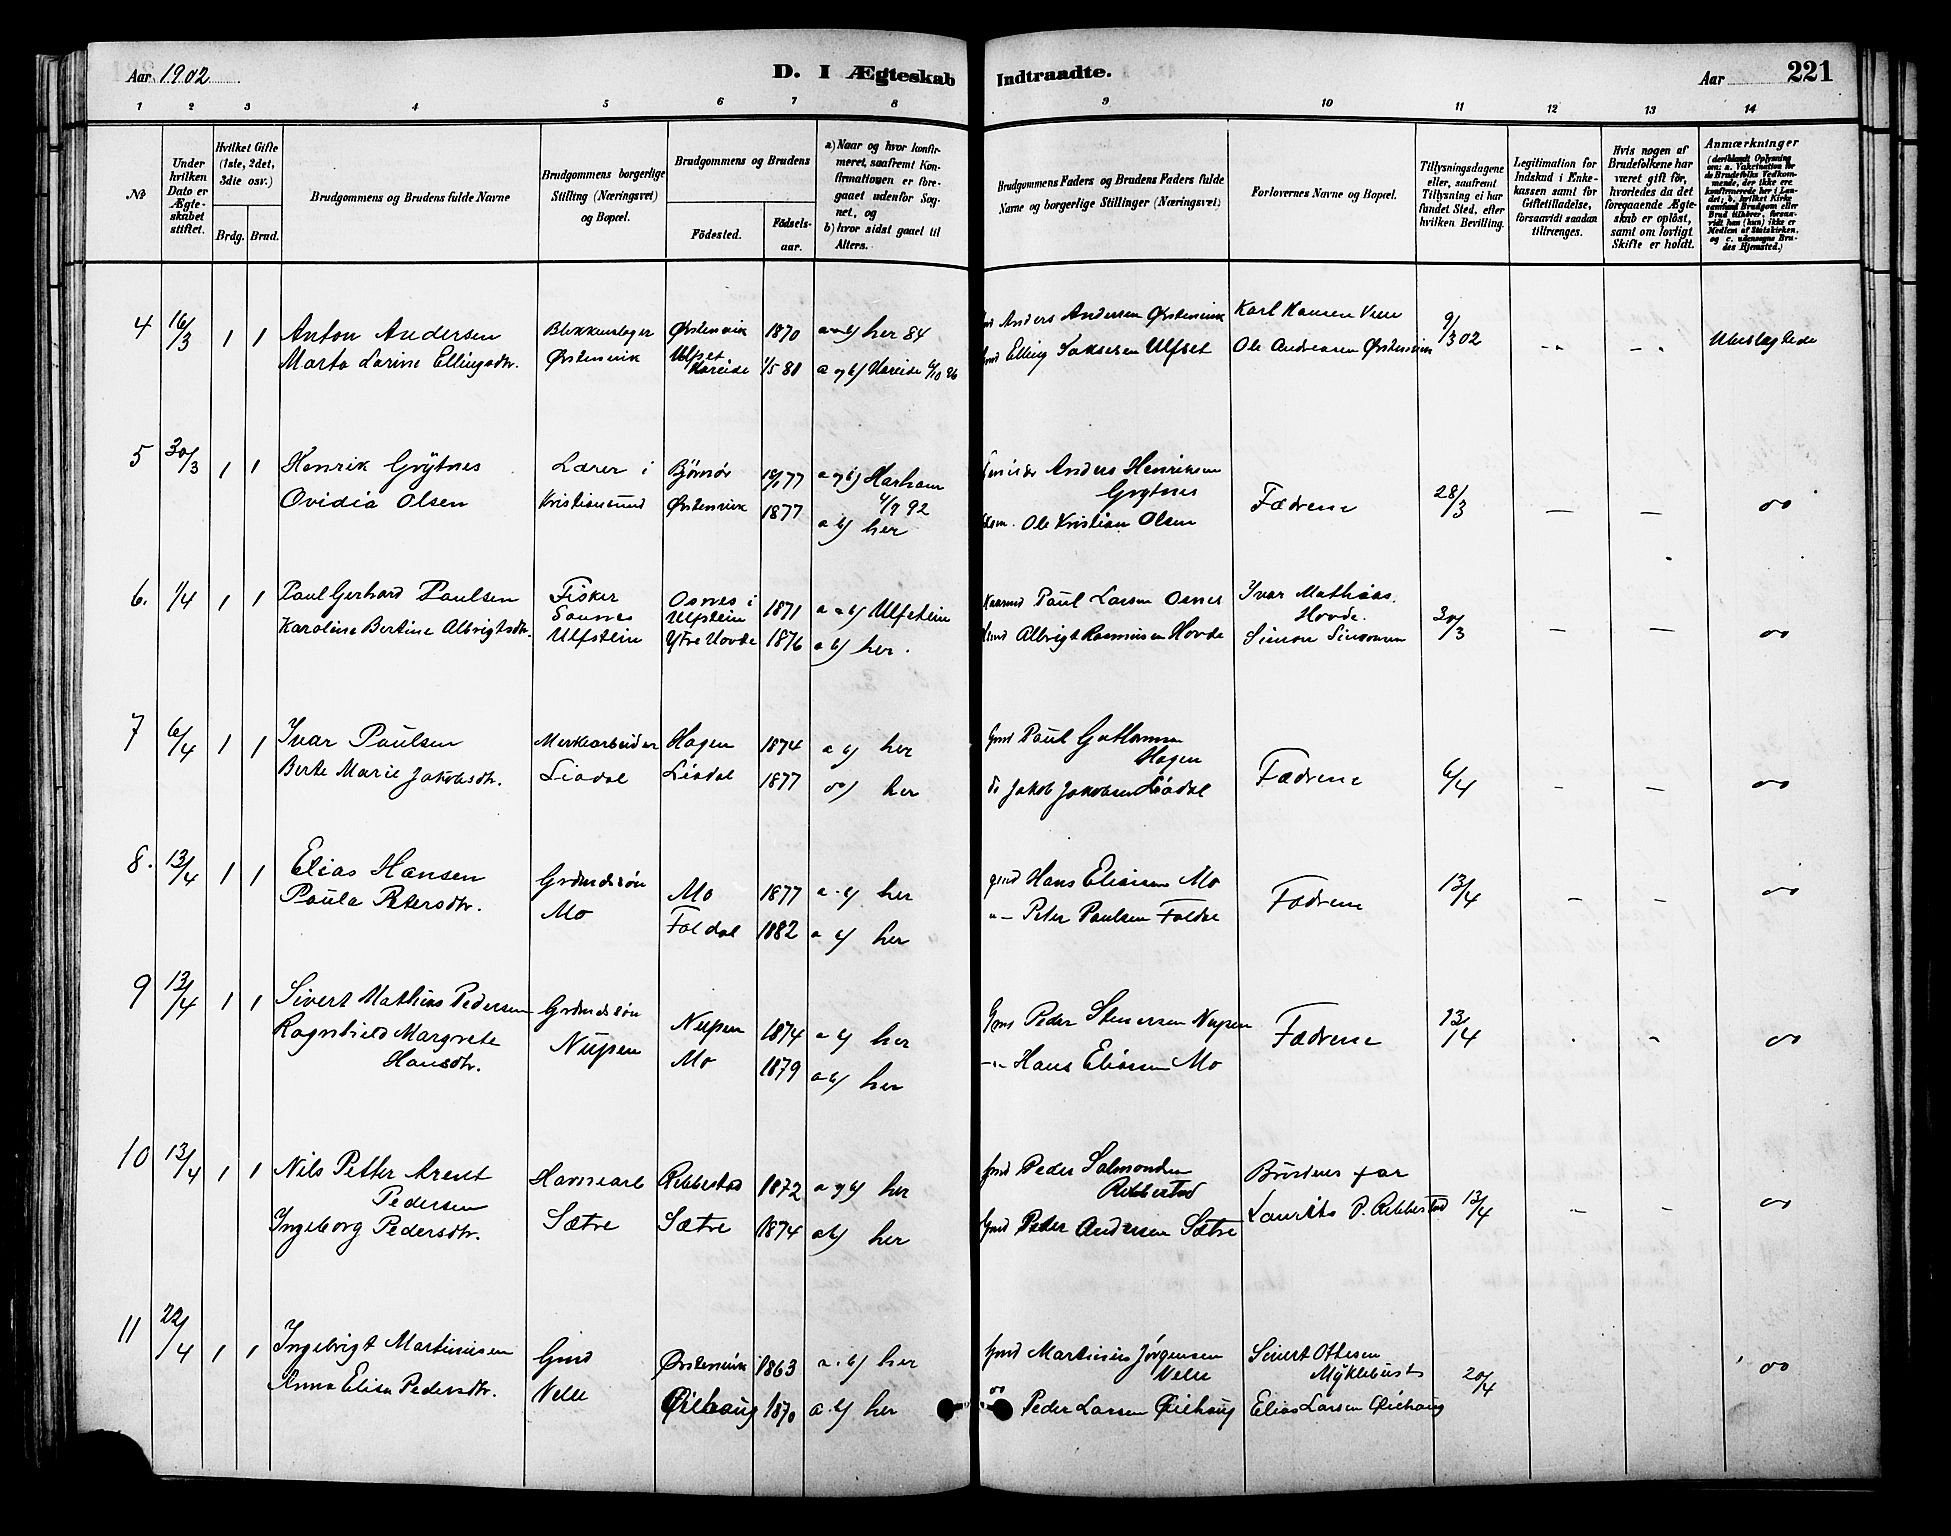 Aar 1902
D. I Ægteskab Indtraadte.
Aar
221
1 2 3 4 5 6 7 8 9 10 11 12 13 14
№
Under hvilken Dato er Ægteskabet stiftet.
Hvilket Gifte (1ste, 2det, 3die osv.)
Brdg. Brud.
Brudgommens og Brudens fulde Navne
Brudgommens borgerlige Stilling (Næringsvei) og Bopæl.
Brudgommens og Brudens
Fødested.
Fødselsaar.
a) Naar og hvor konfirmeret, saafremt Konfirmationen er foregaaet udenfor Sognet, og
b) hvor sidst gaaet til Alters.
Brudgommens Faders og Brudens Faders fulde Navne og borgerlige Stillinger (Næringsvei)
Forlovernes Navne og Bopæl.
Tillysningsdagene eller, saafremt Tillysning ei har fundet Sted, efter hvilken Bevilling.
Legitimation for Indskud i Enkekassen samt for Giftetilladelse, forsaavidt saadan tiltrænges.
Hvis nogen af Brudefolkene har været gift før, hvorledes da det foregaaende Ægteskab er opløst, samt om lovligt Skifte er holdt.
Anmærkninger
(deriblandt Oplysning om: a. Vakcination for de Brudefolks Vedkommende, der ikke ere konfirmerede her i Landet; b. hvilket Kirkesamfund Brudgom eller Brud tilhører, forsaavidt han (hun) ikke er Medlem af Statskirken, og c. udensogns Brudes Hjemsted.)
4 16/3 1 1 Anton Andersen Blikkenslager Ørstenvik 1870 a og b) her 84 Anders Andersen Ørstenvik Karl Hansen Veie 9/3 02
Marta Larine Ellingsdtr. Ørstenvik Ulfset Hareide 1/5 81 a og b) Hareide 4/10 96 Elling Saksesen Ulfset Ole Andreasen Ørstenvik Ubeslægtede
5 30/3 1 1 Henrik Grytnes Lærer i Bjørnør 18/1 77 a og b) Harham 4/9 92 Anders Henriksen Grytnes Fædrene 28/3 — —
Ovidia Olsen Kristiansund Ørstenvik 1877 a b) her Ole Kristian Olsen
6. 1/4 1 1 Paul Gerhard Paulsen Fisker Osnes i Ulfstein 1871 a b) Ulfstein Paul Larsen Osnes Ivar Mathias. Hovde. 30/3 — —
Karoline Bertine Albrigtsdtr. Saunes Ulfstein Ytre Hovde 1876 a b) her. Albrigt Rasmusen Hovde Simon Simonsen
7 6/4 1 1 Ivar Paulsen Hagen 1874 a b) her Gmd Paul Guttormsen Hagen Fædrene 6/4 — —
Berte Marie Jakobsdtr. Liadal Liadal 1877 her do Jakob Jakobsen Liadal
8. 13/4 1 1 Elias Hansen Grdmdssøn Mo 1877 a. b) her gmd Hans Eliasen Mo Fædrene 13/4 — —
Paula Petersdtr. Mo Foldal 1882 a b) her Peter Paulsen Foldal
9 13/4 1 1 Sivert Mathias Pedersen Grdmdssøn Nupen 1874 a b) her Peder Stenersen Nupen Fædrene 13/4
Ragnhild Margrete Hansdtr. Nupen Mo 1879 a b) her Hans Eliasen Mo
10 13/4 1 1 Nils Petter Arent Pedersen Ribbestad 1872 a og b) her gmd Peder Salmonsen Ribbestad Brudens far 13/4 — —
Ingeborg Pedersdtr. Sætre Sætre 1874 a b) her Gmd Peder Andersen Sætre Laurits P. Ribbestad
11 22/4 1 1 Ingebrigt Martinusen Gmd Ørstenvik 1863 a. b) her gmd Martinus Jørgensen Velle Sivert Ottesen Myklebust 20/4
Anna Elisa Pedersdtr. Velle Øiehaug 1870 a. b) her Peder Larsen Øiehaug Elias Larsen Øiehaug